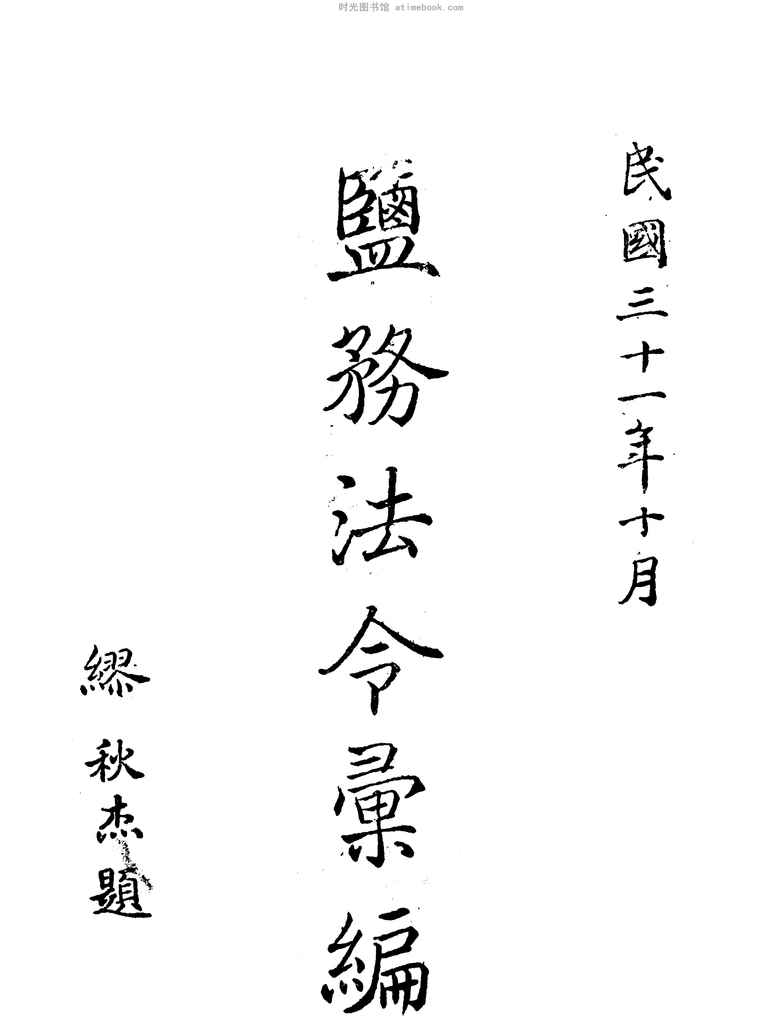 时光图书馆 atimebook.com
民國三十一年十月
鹽務法令彙編
繆秋杰題